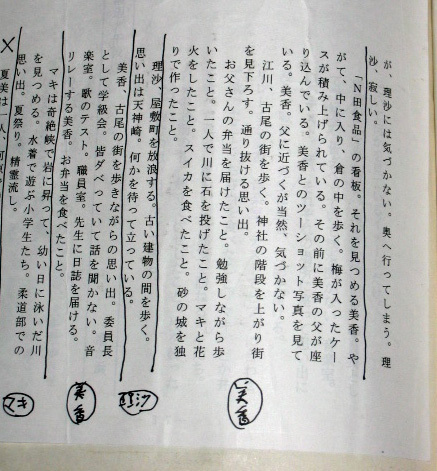 が、理沙には気づかない。奥へ行ってしまう。理
沙、寂しい。
「N田食品」の看板。それを見つめる美香。や
がて、中に入り、倉の中を歩く。梅が入ったケー
スが積み上げられている。その前に美香の父が座
り込んでいる。美香とのツーショット写真を見て
いる。美香。父に近づくが当然、気づかない。
江川、古尾の街を歩く。神社の階段を上がり街
を見下ろす。通り抜ける思い出。
お父さんの弁当を届けたこと。勉強しながら歩
いたこと。一人で川に石を投げたこと。マキと花
火をしたこと。スイカを食べたこと。砂の城を独
りで作ったこと。
理沙、屋敷町を放浪する。古い建物の間を歩く。
思い出は天神崎。何かを待って立っている。
美香、古尾の街を歩きながらの思い出。委員長
として学級会。皆ダベっていて話を聞かない。音
楽室。歌のテスト。職員室。先生に日誌を届ける。
リレーする美香。お弁当を食べたこと。
マキは奇絶峡で岩に昇って、幼い日に泳いだ川
を見つめる。水着で遊ぶ小学生たち。柔道部での
思い出。夏祭り。精霊流し。
夏美は一人、
美香
理沙
美香
マキ